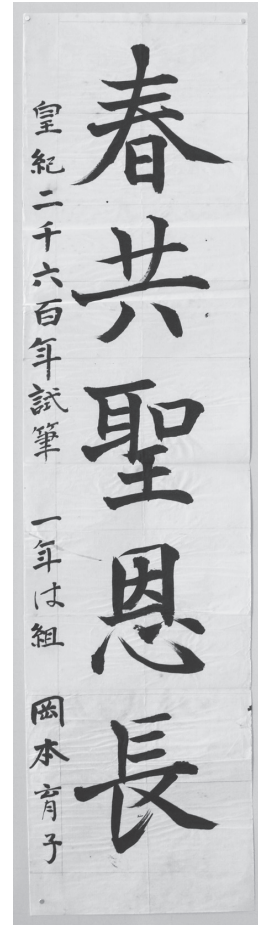 春共聖恩長
皇紀二千六百年試筆 一年は組 岡本育子